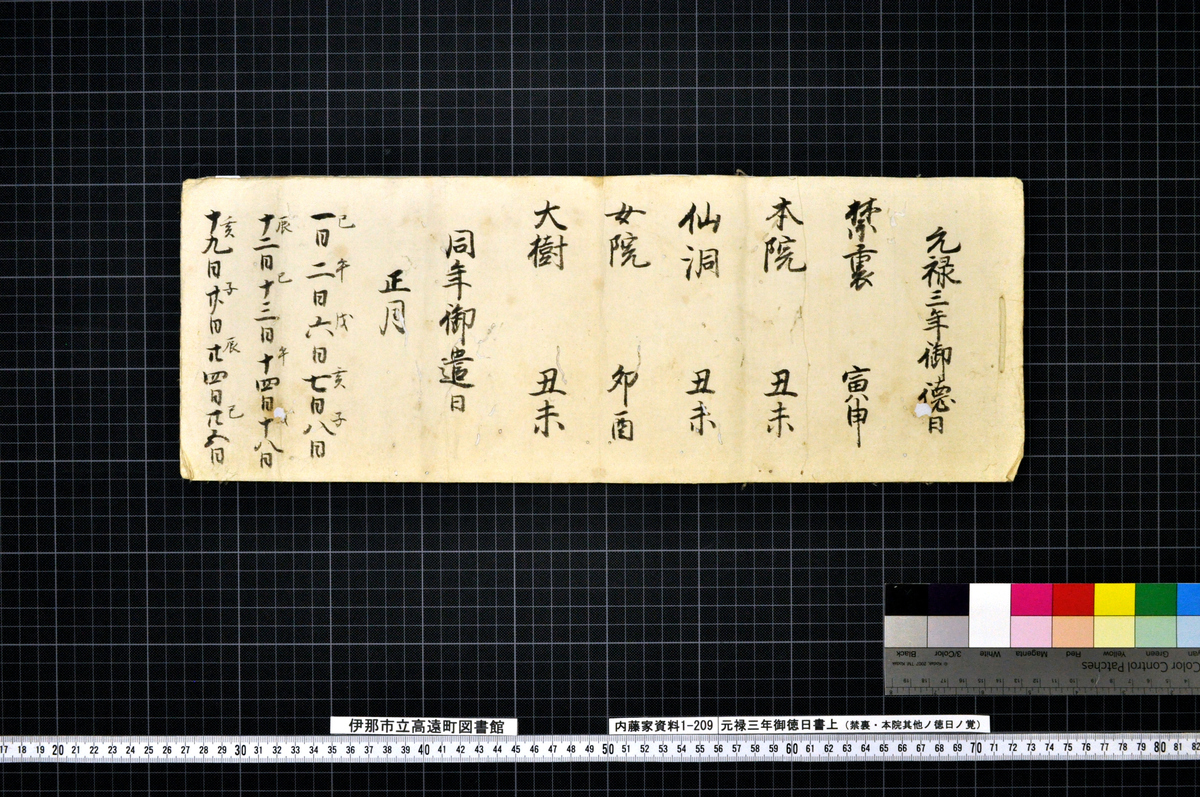 元禄三年御徳日
禁裏 寅申
本院 丑未
仙洞 丑未
女院 卯酉
大樹 丑未
同年御遣日
正月
巳 午 戌 亥 子
一日 二日 六日 七日 八日
辰 巳 午
十二日 十三日 十四日 十八日
亥 子 辰 巳
十九日 廿日 廿四日 廿五日
Black 3/Color White Magenta Red Yellow Green
Color Control Patches
伊那市立高遠町図書館
内藤家資料1-209 元禄三年御徳日書上(禁裏・本院其他ノ徳日ノ覚)
17 18 19 20 21 22 23 24 25 26 27 28 29 30 31 32 33 34 35 36 37 38 39 40 41 42 43 44 45 46 47 48 49 50 51 52 53 54 55 56 57 58 59 60 61 62 63 64 65 66 67 68 69 70 71 72 73 74 75 76 77 78 79 80 81 82